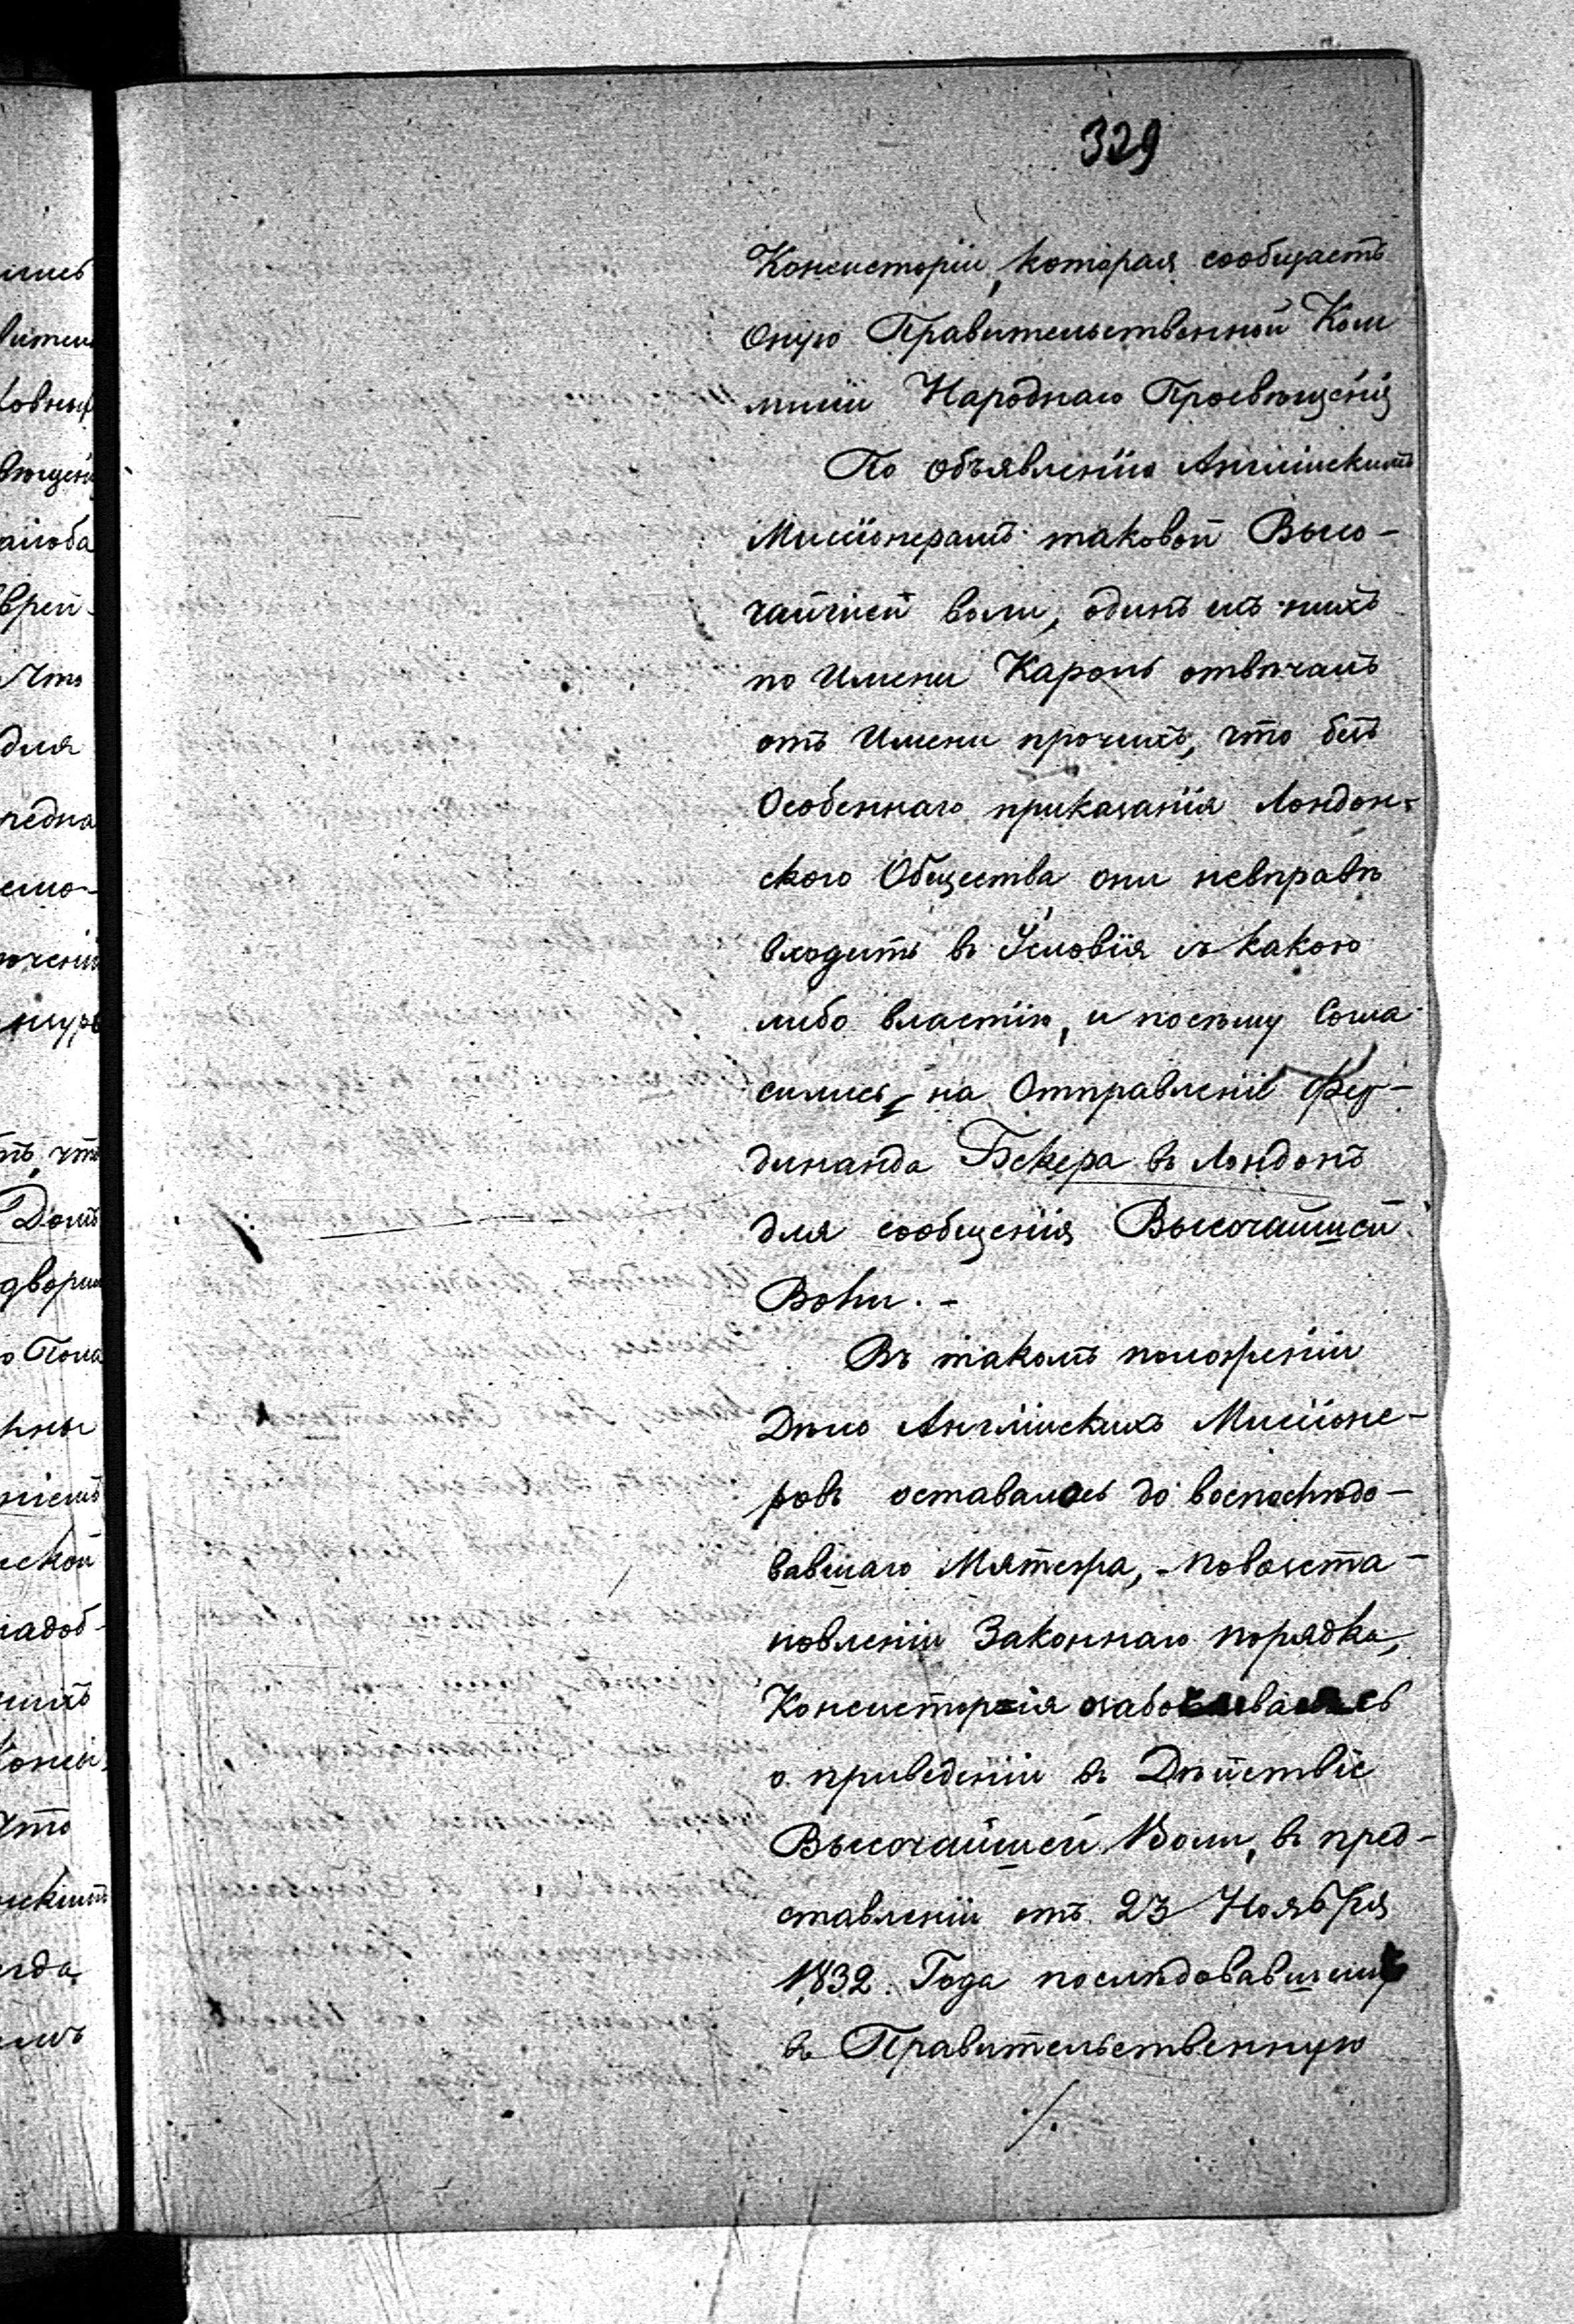 329
Консисторіи, которая сообщаетъ
Оную Правительственной Ком
мисіи Народнаго Просвѣщенія
По объявленію Англійскимъ
Мисіонерамъ таковой Высо-
чайшей воли, одинъ изъ нихъ
по Имени Кароль отвѣчалъ
отъ Имени прочихъ, что безъ
Особеннаго приказанія Лондон-
ского Общества они невправѣ
входить въ Условія съ какою
либо властію, и посему Согла
сились, на Отправленіе Фер-
динанда Бекера въ Лондонъ
для сообщенія Высочайшей
Воли. -
Въ такомъ положеніи
Дѣло Англійскихъ Мисіоне-
ровъ оставалось до воспослѣдо-
вавшаго Мятежа, - повозста-
новленіи Законнаго порядка,
Консисторія
о приведеніи въ Дѣйствіе
Высочайшей Воли, въ пред-
ставленіи отъ 23 Ноября
1832. Года послѣдовавшимъ
въ Правительственную
./.